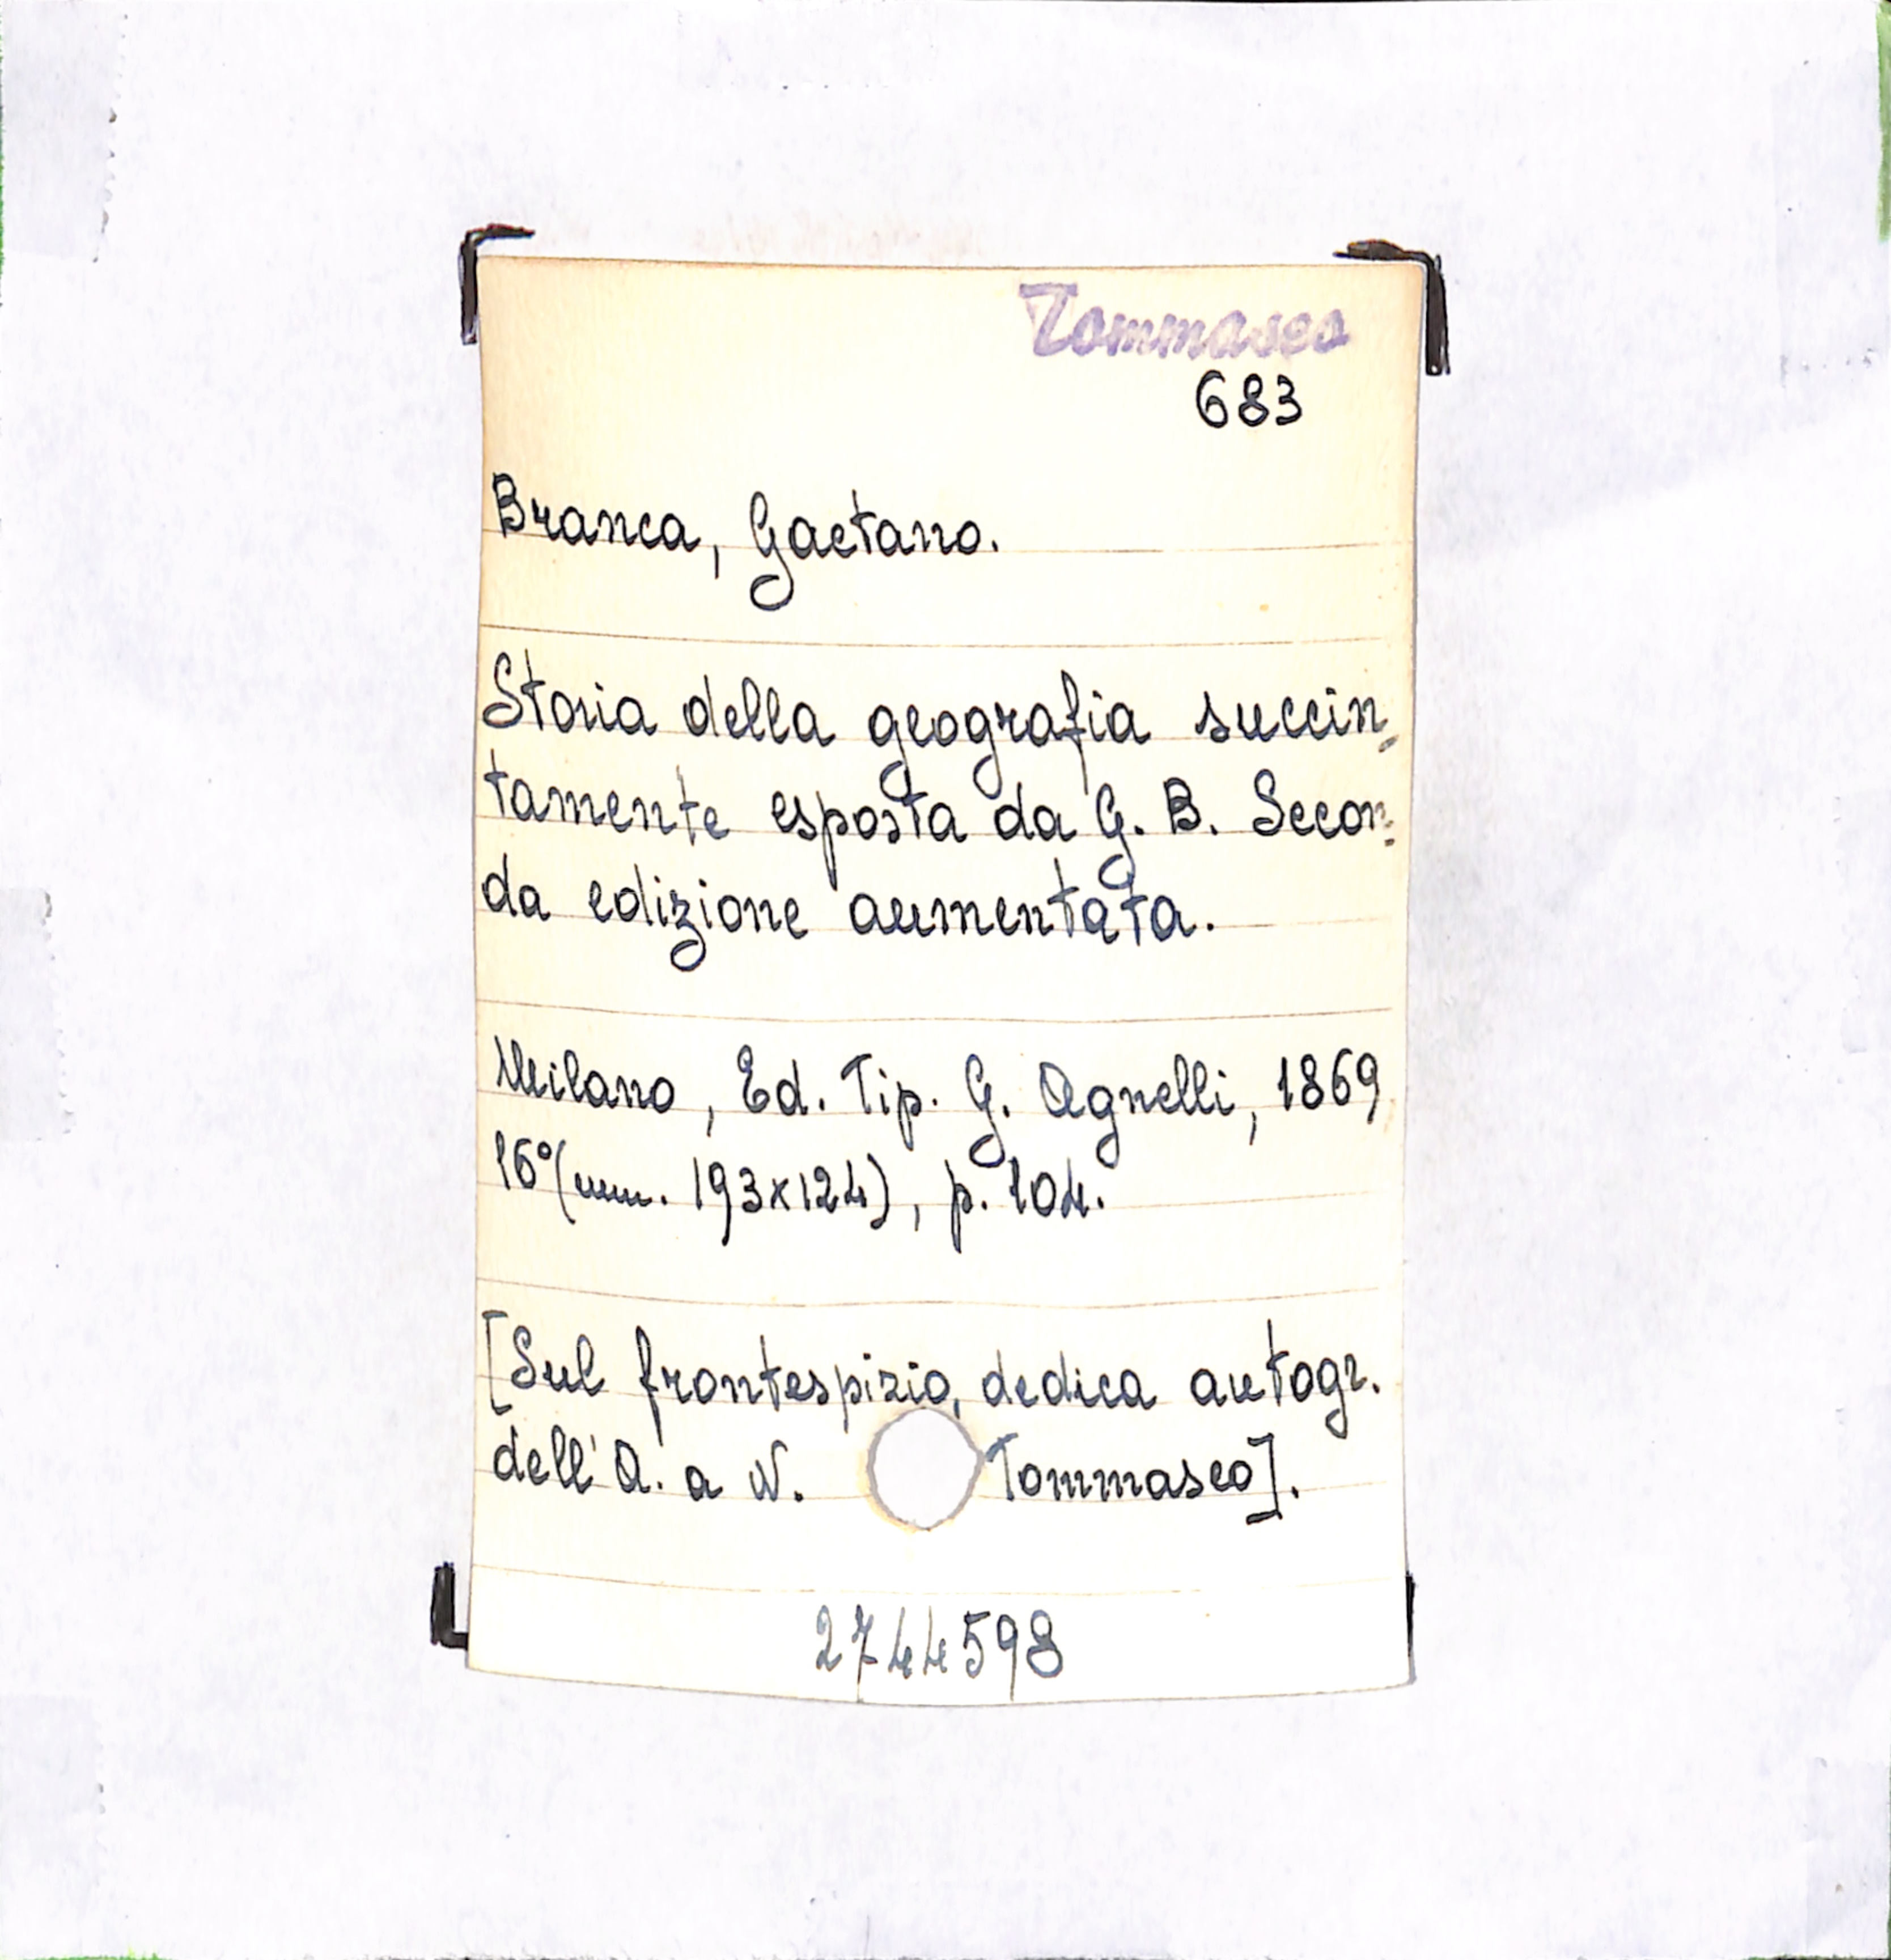 Tommaseo
683
Branca, Gaetano.
Storia della geografia succin=
tamente esposta da G. B. Secon=
da edizione aumentata.
Milano, Ed. Tip. G. Agnelli, 1869
16°(mm. 193x124), p. 104.
[Sul frontespizio, dedica autogr.
dell'A. a N. Tommaseo].
2744598